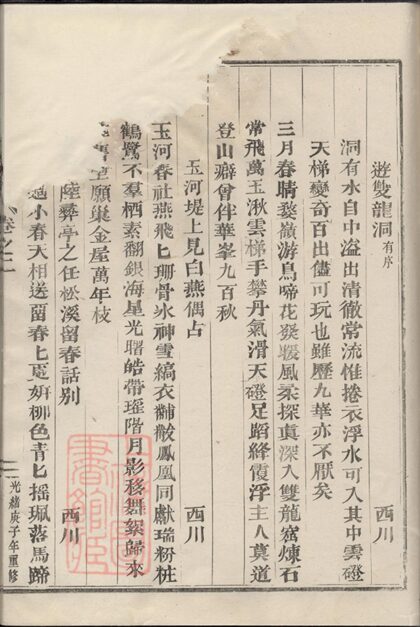 遊雙龍洞有序 西川
洞有水自中溢出清徹常流惟捲衣浮水可入其中雲磴
天梯變奇百出儘可玩也雖歷九華亦不厭矣
三月春晴婺嶺游鳥啼花發暖風柔探眞深入雙龍窟煉石
常飛萬玉湫雲梯手攀丹氣滑天磴足蹈絳霞浮主人莫道
登山癖曾伴華峯九百秋
玉河堤上見白燕偶占 西川
玉河春社燕飛匕珊骨氷神雪縞衣黼黻鳳凰同獻瑞粉粧
鶴鷺不羣栖素翻銀海星光曙皓帶瑤階月影移舞絮歸來
願巢金屋萬年枝
陸彝亭之任松溪留春話別 西川
小春天相送畱春匕妍柳色青匕搖珮落馬蹄
卷之二
光緒庚子年重修